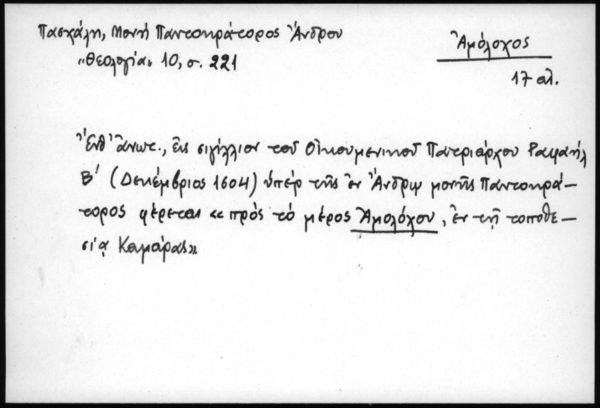 Πασχάλη, Μονή Παντοκράτορος Ἄνδρου
«Θεολογία» 10, σ. 221
Ἀμόλοχος
17 αἰ.
Ἔνθ' ἄνωτ., εἰς σιγίλλιον τοῦ Οἰκουμενικοῦ Πατριάρχου Ραφαήλ
Β' (Δεκέμβριος 1604) ὑπέρ τῆς ἐν Ἄνδρῳ μονῆς Παντοκρά-
τορος φέρεται «πρός τό μέρος Ἀμολόχου, ἐν τῇ τοποθε-
σίᾳ Καμάρας»